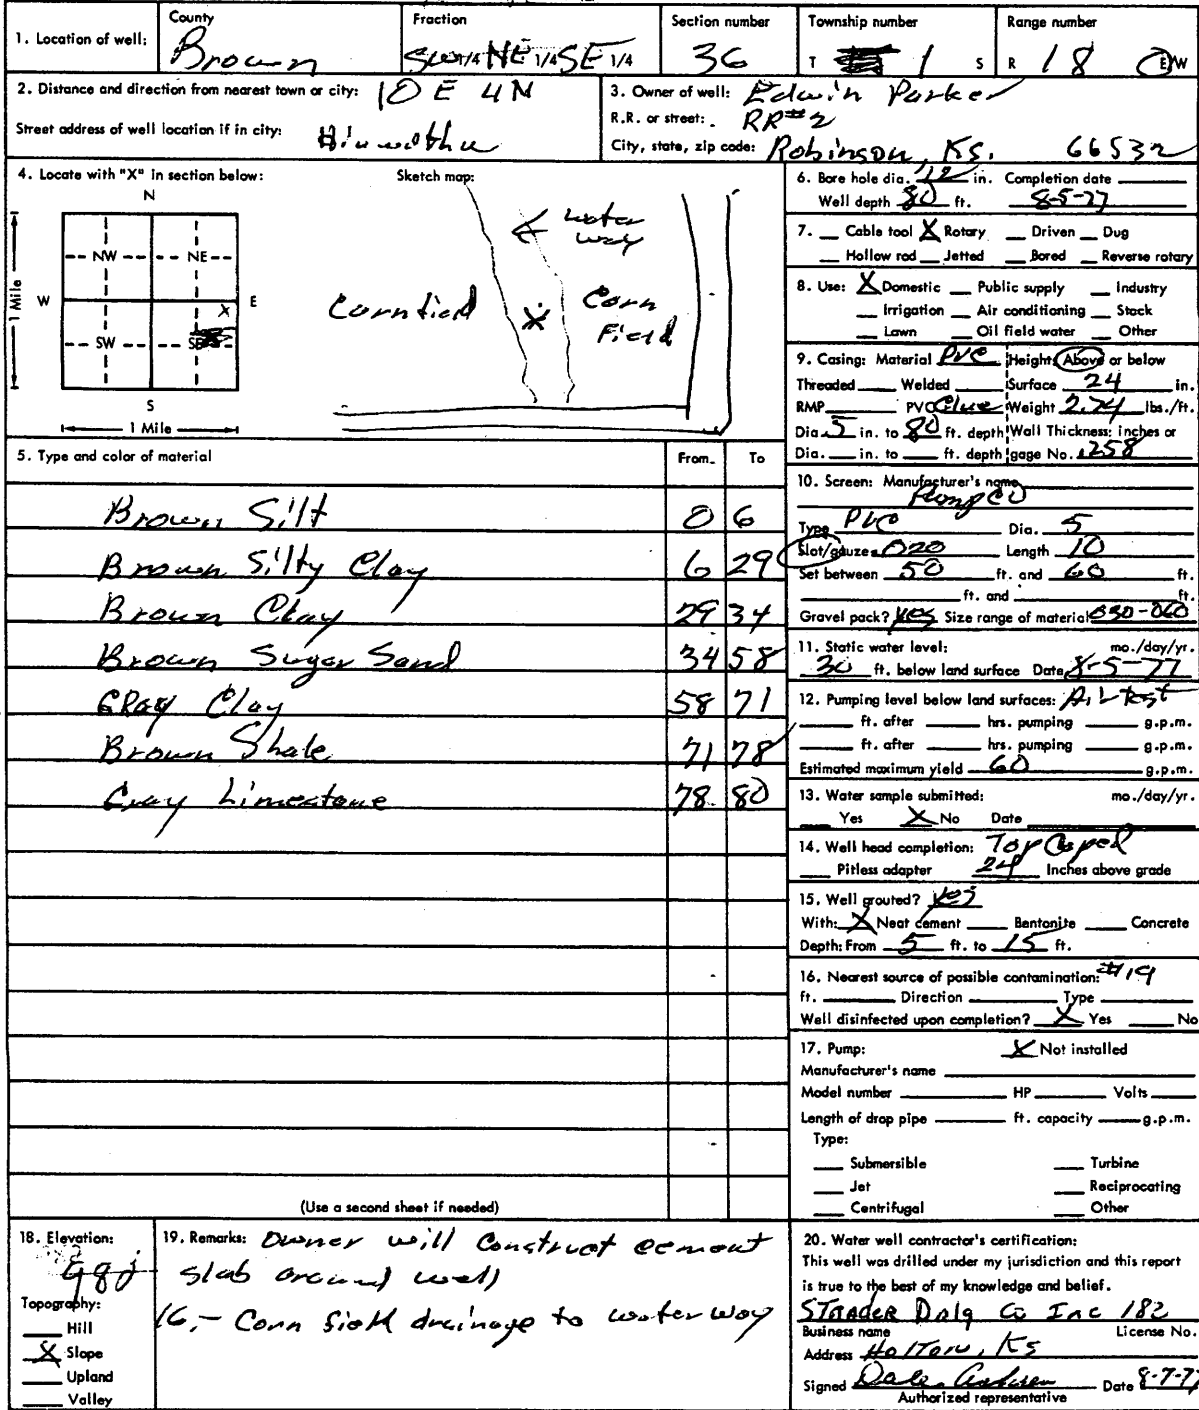 1. Location of well: County Brown Fraction SW 1/4 NE 1/4 SE 1/4 Section number 36 Township number T 1 S Range number R 18 E/W
2. Distance and direction from nearest town or city: 10 E 4N
Street address of well location if in city: Hiawatha
3. Owner of well: Edwin Parker
R.R. or street: RR#2
City, state, zip code: Robinson, Ks. 66532
4. Locate with "X" in section below:
N
NW NE
W E
X
SW SE
S
1 Mile
1 Mile
Sketch map:
water way
Cornfield
X
Corn Field
5. Type and color of material From To
Brown Silt 0 6
Brown Silty Clay 6 29
Brown Clay 29 34
Brown Sugar Sand 34 58
GRay Clay 58 71
Brown Shale 71 78
Gray Limestone 78 80
(Use a second sheet if needed)
6. Bore hole dia. 12 in. Completion date
Well depth 80 ft. 8-5-77
7. Cable tool X Rotary Driven Dug
Hollow rod Jetted Bored Reverse rotary
8. Use: X Domestic Public supply Industry
Irrigation Air conditioning Stock
Lawn Oil field water Other
9. Casing: Material PVC Height: Above or below
Threaded Welded Surface 24 in.
RMP PVC Glue Weight 2.74 lbs./ft.
Dia. 5 in. to 80 ft. depth Wall Thickness: inches or
Dia. in. to ft. depth gage No. .258
10. Screen: Manufacturer's name
Type PVC Dia. 5
Slot/gauze .020 Length 10
Set between 50 ft. and 60 ft.
ft. and ft.
Gravel pack? yes Size range of material 030-060
11. Static water level: mo./day/yr.
30 ft. below land surface Date 8-5-77
12. Pumping level below land surfaces: Air test
ft. after hrs. pumping g.p.m.
ft. after hrs. pumping g.p.m.
Estimated maximum yield 60 g.p.m.
13. Water sample submitted: mo./day/yr.
Yes X No Date
14. Well head completion: Top Caped
Pitless adapter 24 Inches above grade
15. Well grouted? yes
With: X Neat cement Bentonite Concrete
Depth: From 5 ft. to 15 ft.
16. Nearest source of possible contamination: #19
ft. Direction Type
Well disinfected upon completion? X Yes No
17. Pump: X Not installed
Manufacturer's name
Model number HP Volts
Length of drop pipe ft. capacity g.p.m.
Type:
Submersible Turbine
Jet Reciprocating
Centrifugal Other
18. Elevation:
Topography:
Hill
X Slope
Upland
Valley
19. Remarks: Owner will construct cement
slab around well
16,- Corn field drainage to waterway
20. Water well contractor's certification:
This well was drilled under my jurisdiction and this report
is true to the best of my knowledge and belief.
STRADER Drlg Co Inc 182
Business name License No.
Address HolTon, Ks
Signed Dale Date 8-7-77
Authorized representative